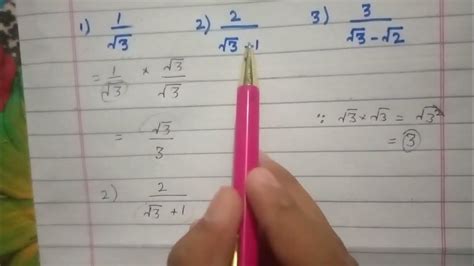 1) 1/√3 2) 2/√3 + 1 3) 3/√3 − √2
= 1/√3 × √3/√3
∵ √3 × √3 = √3²
= √3/3
= 3
2) 2/√3 + 1